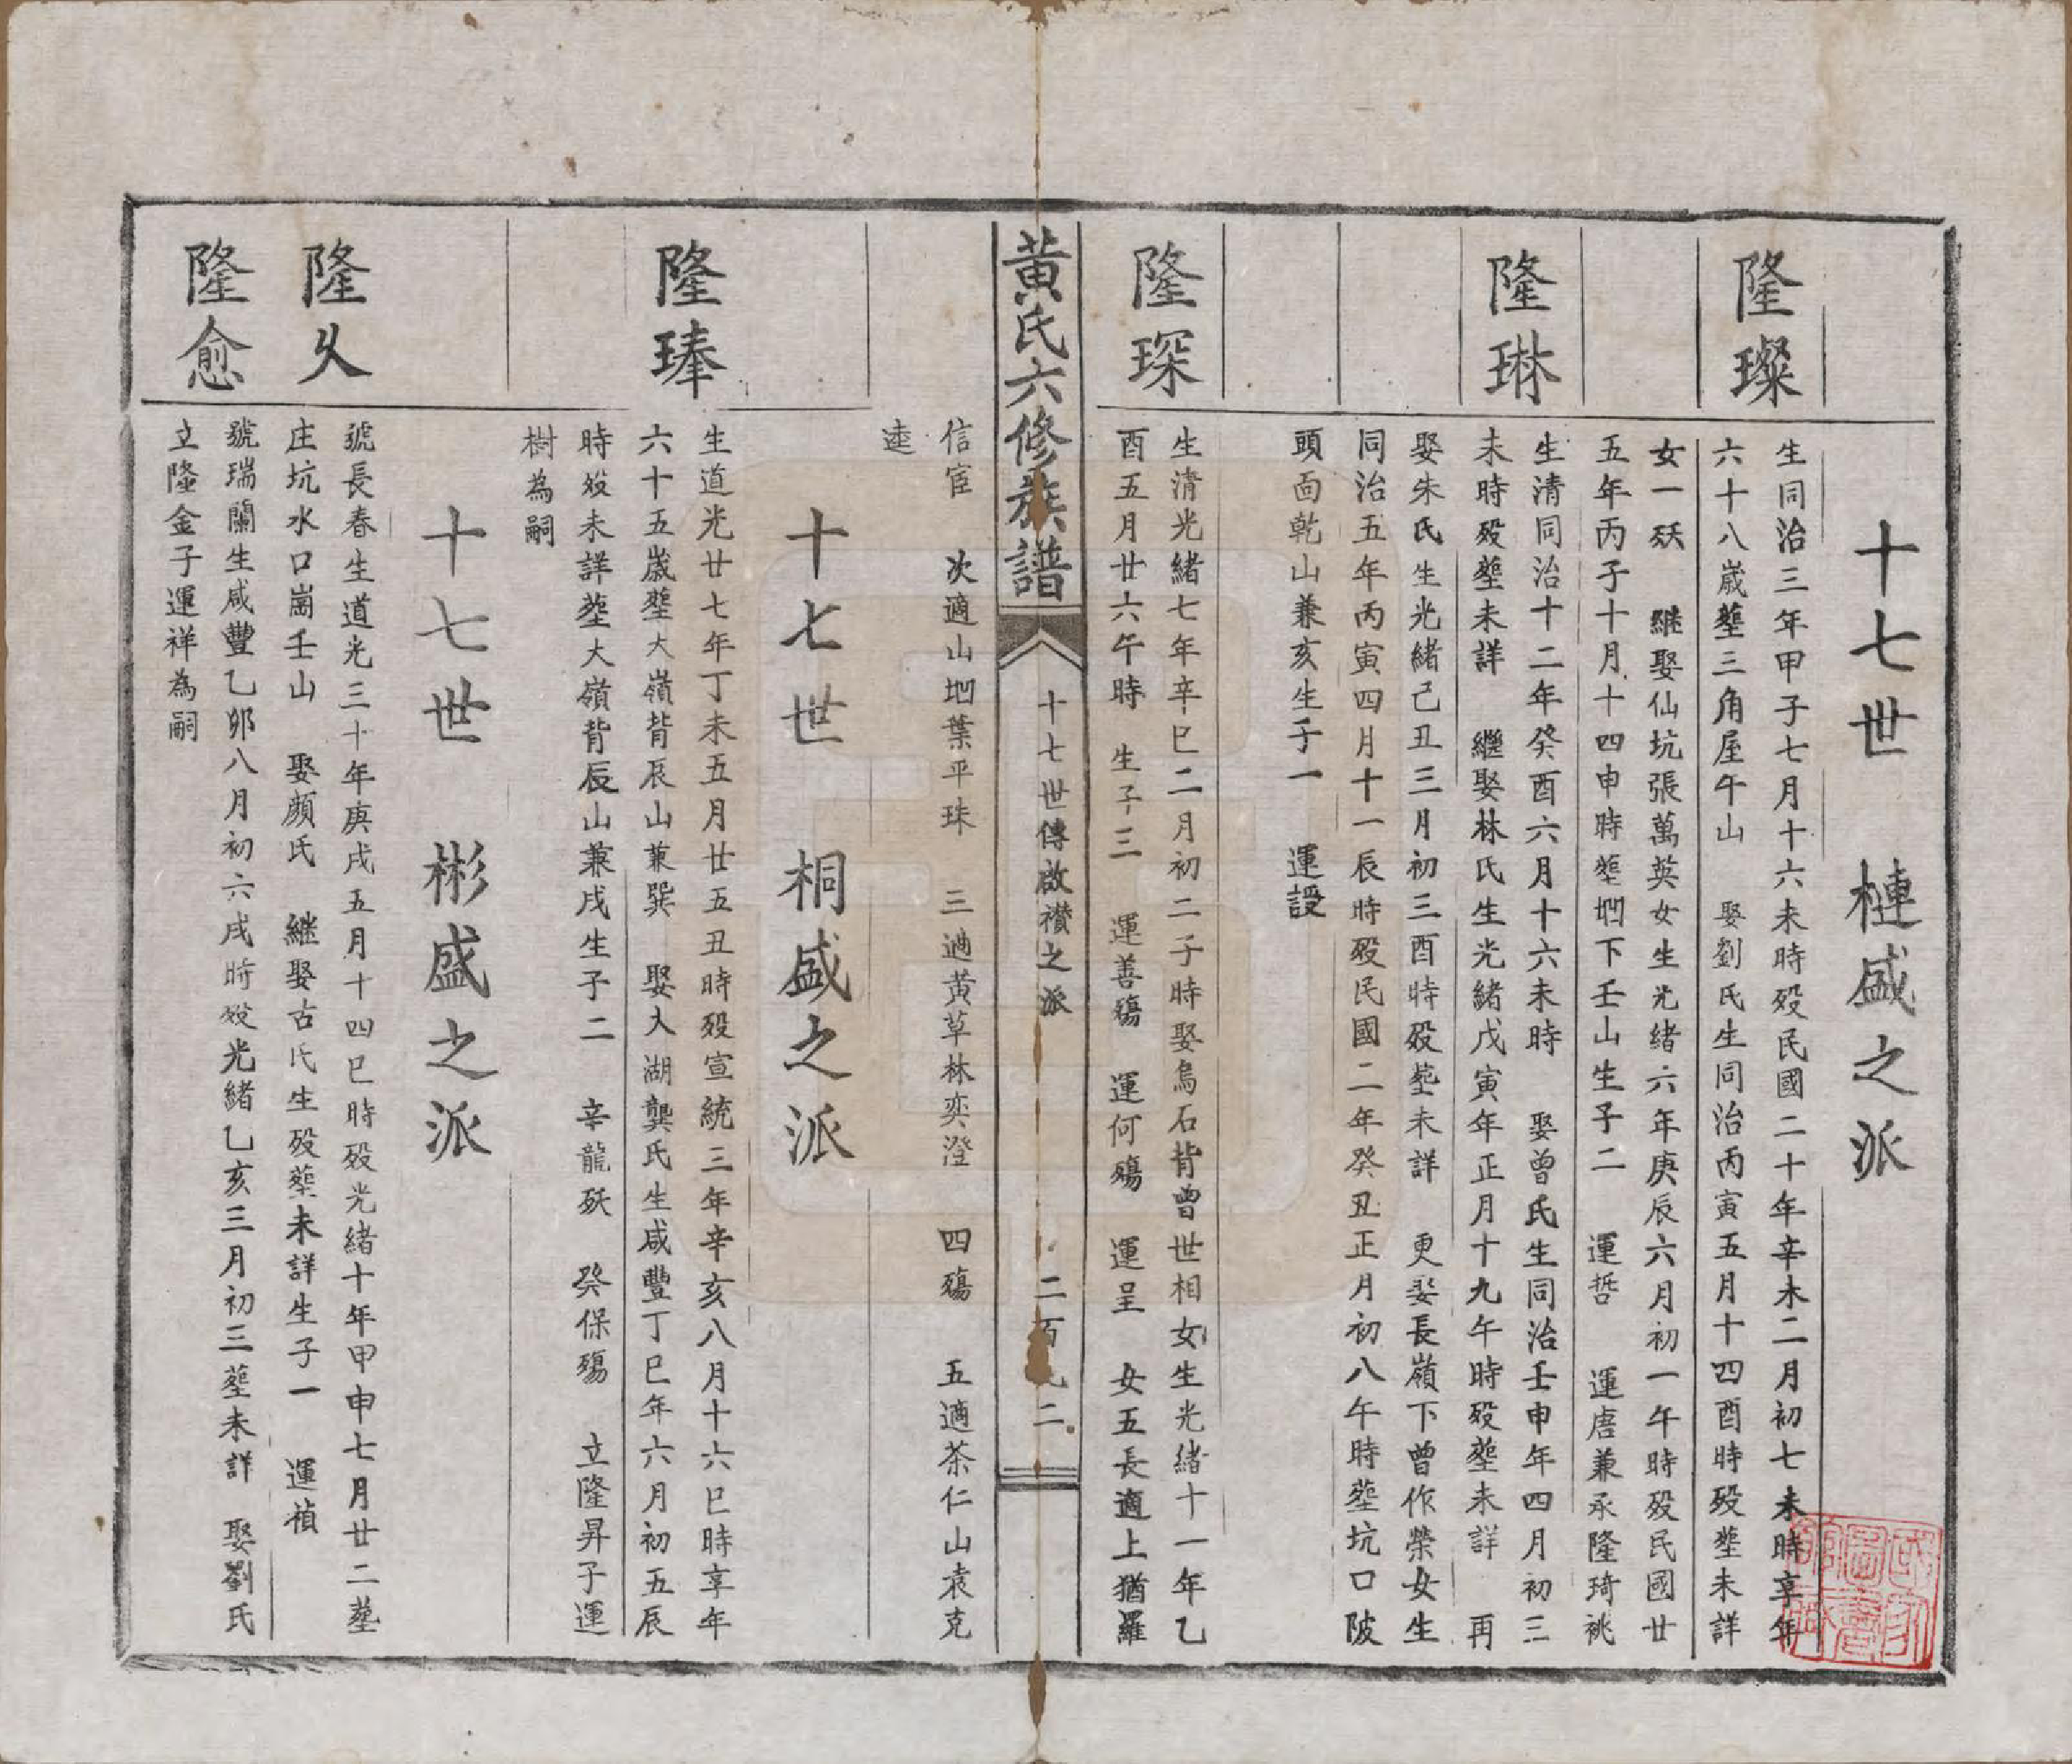 十七世 槤盛之派
隆璨
生同治三年甲子七月十六未時歿民國二十年辛未二月初七未時享年
六十八歲塟三角屋午山 娶劉氏生同治丙寅五月十四酉時歿塟未詳
女一殀 継娶仙坑張萬英女生光緒六年庚辰六月初一午時歿民國廿
五年丙子十月十四申時塟垇下壬山生子二 運哲 運唐兼承隆琦祧
隆琳
生清同治十二年癸酉六月十六未時 娶曾氏生同治壬申年四月初三
未時歿塟未詳 繼娶林氏生光緒戊寅年正月十九午時歿塟未詳 再
娶朱氏生光緒己丑三月初三酉時歿塟未詳 更娶長嶺下曾作榮女生
同治五年丙寅四月十一辰時歿民國二年癸丑正月初八午時塟坑口陂
頭面乾山兼亥生子一 運設
隆琛
生清光緒七年辛巳二月初二子時娶烏石背曾世相女生光緒十一年乙
酉五月廿六午時 生子三 運善殤 運何殤 運呈 女五長適上猶羅
黄氏六修族譜
十七世傳啟禶之派
二百 二
信宦 次適山垇葉平珠 三適黃草林奕澄 四殤 五適茶仁山袁克
逵
十七世 桐盛之派
隆琫
生道光廿七年丁未五月廿五丑時歿宣統三年辛亥八月十六巳時享年
六十五歲塟大嶺背辰山兼巽 娶大湖龔氏生咸豐丁巳年六月初五辰
時歿未詳塟大嶺背辰山兼戌生子二 辛龍殀 癸保殤 立隆昇子運
樹為嗣
十七世 彬盛之派
隆久
號長春生道光三十年庚戌五月十四巳時歿光緒十年甲申七月廿二塟
庄坑水口崗壬山 娶顏氏 継娶古氏生歿塟未詳生子一 運禎
隆愈
號瑞蘭生咸豐乙卯八月初六戌時歿光緒乙亥三月初三塟未詳 娶劉氏
立隆金子運祥為嗣